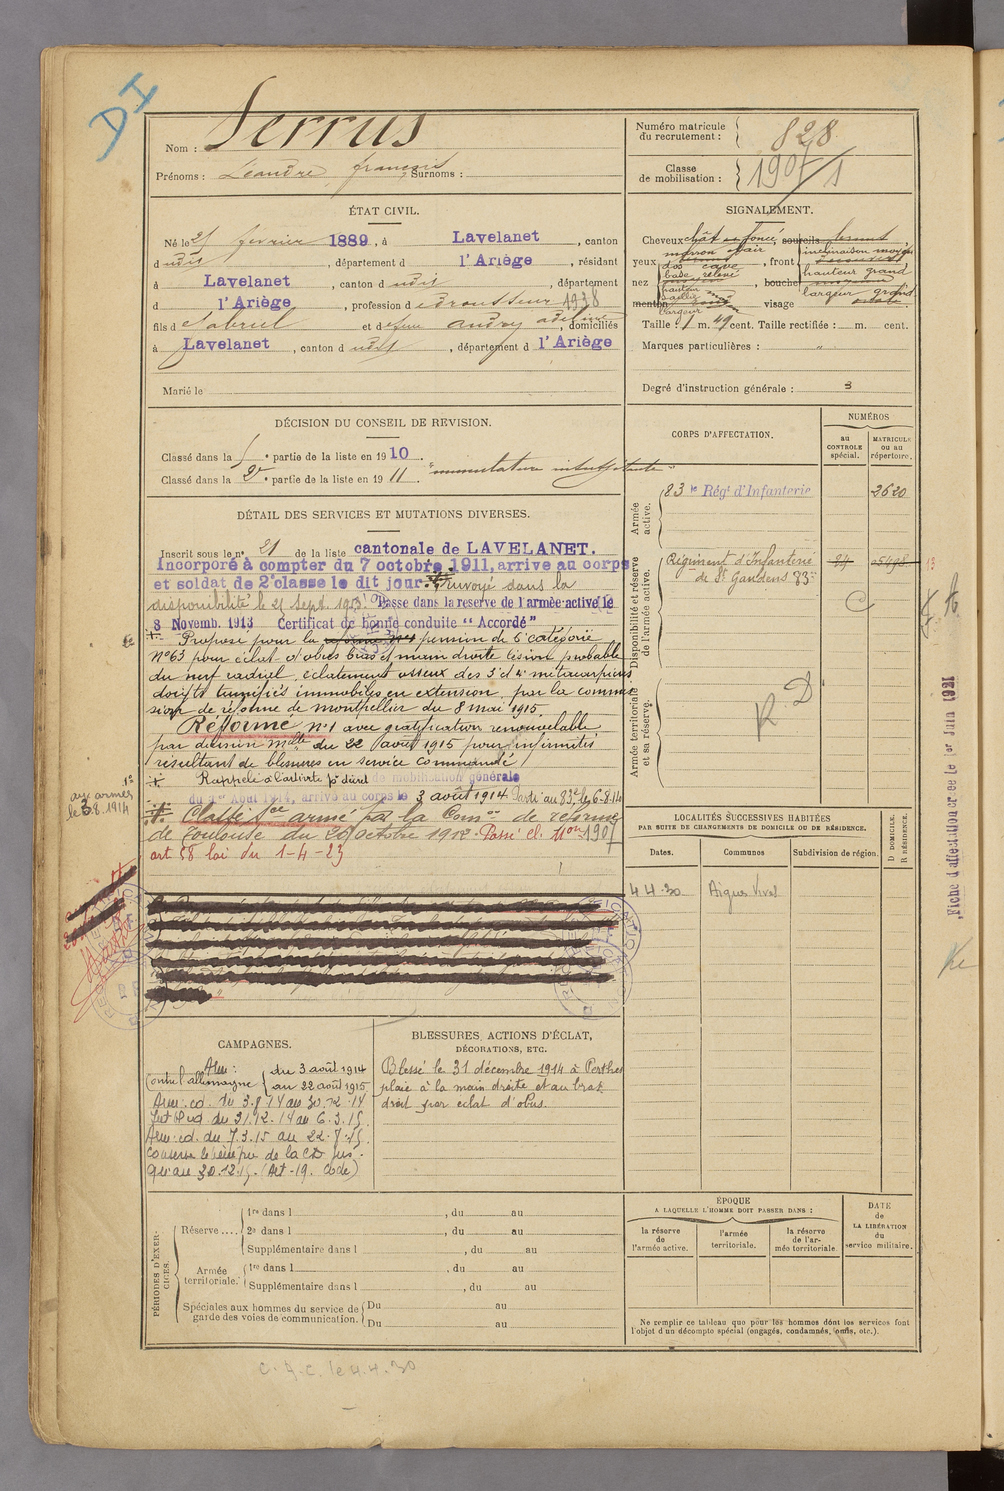 DI
Nom : Serrus
Prénoms : Léandre, françois Surnoms :
Numéro matricule du recrutement : 828
Classe de mobilisation : 1907/1
ÉTAT CIVIL.
Né le 21 février 1889, à Lavelanet, canton
d udit, département d l'Ariège, résidant
à Lavelanet, canton d udit, département
d l'Ariège, profession d 1938
fils d Gabriel et d domiciliés
à Lavelanet, canton d udit, département d l'Ariège
Marié le
SIGNALEMENT.
Cheveux chât foncé, sourcils bruns,
yeux marron clair, front inclinaison moyen
dos cave hauteur grand
nez base relevé, bouche moyenne largeur grand
hauteur
saillie
menton largeur visage ovale
Taille : 1 m. 49 cent. Taille rectifiée : m. cent.
Marques particulières : "
Degré d'instruction générale : 3
DÉCISION DU CONSEIL DE REVISION.
Classé dans la partie de la liste en 1910
Classé dans la 2e partie de la liste en 1911
CORPS D'AFFECTATION.
NUMÉROS
au CONTROLE spécial.
MATRICULE ou au répertoire.
Armée active.
83 le Régt d'Infanterie 2620
Disponibilité et réserve de l'armée active.
Régiment d'Infanterie 24 05498
de St Gaudens 83e
C
Armée territoriale et sa réserve.
RD
DÉTAIL DES SERVICES ET MUTATIONS DIVERSES.
Inscrit sous le no 21 de la liste cantonale de LAVELANET.
Incorporé à compter du 7 octobre 1911, arrive au corps
et soldat de 2e classe le dit jour. Envoyé dans la
disponibilité le 21 sept. 1913. Passe dans la reserve de l'armée active le
8 Novemb. 1913 Certificat de bonne conduite "Accordé"
Proposé pour la réforme no 1 pension de 6e catégorie
No 63 pour éclat d'obus bras et main droite lésion probable
du nerf radial, éclatement osseux des 3e et 4e métacarpiens
doigts tuméfiés immobiles en extension, par la commis
sion de réforme de Montpellier du 8 mai 1915.
Réformé no 1 avec gratification renouvelable
par décision Mlle du 22 août 1915 pour infirmités
résultant de blessures en service commandé
Rappelé à l'activité pr décret de mobilisation générale
du 1er Août 1914, arrivé au corps le 3 août 1914 Parti au 83e le 6-8-14
aux armées
le 3.8.1914
Classé Sce armé par la Comon de réforme
de Toulouse du 20 octobre 1912. Passé cl. Mon 1907
art 58 loi du 1-4-23
LOCALITÉS SUCCESSIVES HABITÉES
PAR SUITE DE CHANGEMENTS DE DOMICILE OU DE RÉSIDENCE.
Dates. Communes Subdivision de région. D DOMICILE. R RÉSIDENCE.
4 4-30 Aigues Vives
Fiche d'affectation créée le 1er Juin 1921
CAMPAGNES.
Contre l'allemagne Arm : du 3 août 1914
au 22 août 1915
Arm : cd. du 3.8.14 au 30.12.14
Int. cd du 31.12.14 au 6.3.15
Arm : cd. du 7.3.15 au 22.8.15
Conserve le bénéfice de la CD jus-
qu'au 30.12.15. (Art-19. Code)
BLESSURES, ACTIONS D'ÉCLAT,
DÉCORATIONS, ETC.
Blessé le 31 décembre 1914 à Perthes
plaie à la main droite et au bras
droit par éclat d'obus.
PÉRIODES D'EXERCICES.
Réserve....
1re dans l , du au
2e dans l , du au
Supplémentaire dans l , du au
Armée territoriale.
1re dans l , du au
Supplémentaire dans l , du au
Spéciales aux hommes du service de garde des voies de communication.
Du au
Du au
ÉPOQUE
A LAQUELLE L'HOMME DOIT PASSER DANS :
la réserve de l'armée active.
l'armée territoriale.
la réserve de l'armée territoriale.
DATE de LA LIBÉRATION du service militaire.
Ne remplir ce tableau que pour les hommes dont les services font
l'objet d'un décompte spécial (engagés, condamnés, omis, etc.).
C.A.C. le 4.4.30